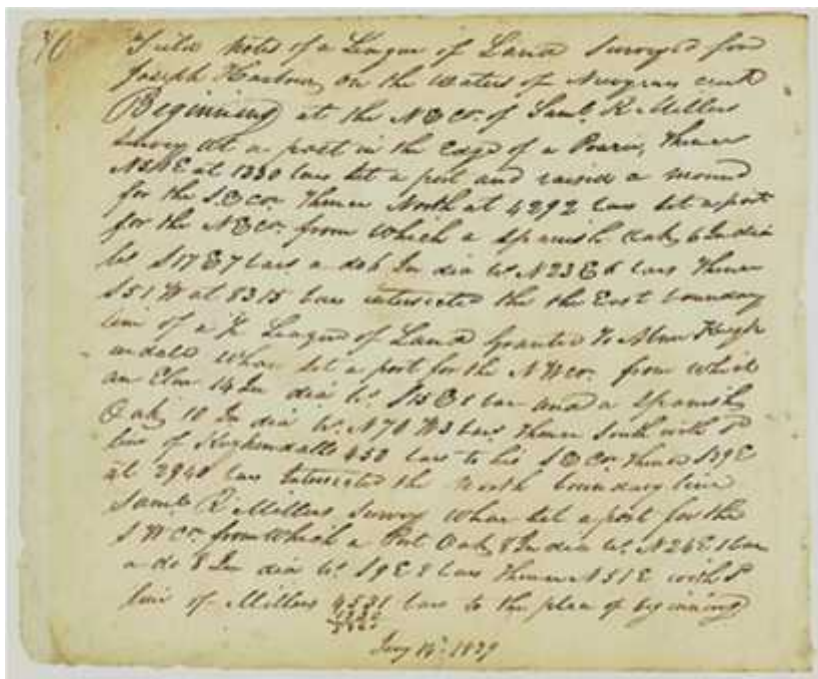 Field Notes of a League of Land Surveyed for
Joseph Harbour, on the Waters of Newyear creek
Beginning at the N E Cr. of Saml. R Millers
Survey at a post in the Edge of a Prairie, thence
at 1330 vars set a post and raised a mound
for the S. E cor. thence North at 4292 vars set a post
for the N E cr. from which a Spanish Oak, 6 In dia
brs S 17 E 7 vars a do 6 In dia br N 23 E 6 vars thence
S 51 W at 8315 vars intersected the the East boundary
line of a ½ League of Land granted to
whare set a post for the N W cor. from which
an Elm 14 In dia br. S 15 E 1 var and a Spanish
Oak, 10 In dia br. N 70 W 3 vars thence South with
line of Kuykendalls 452 vars to his S E Cr. thence S 39 E
at 2940 vars Intersected the North boundary line
Saml R Millers Survey whare set a post for the
S W cr. from which a Post Oak, 8 In dia br. N 26 E 1 var
a do 8 In dia br. S 9 E 2 vars thence N 51 E with
line of Millers 4531 vars to the place of beginning